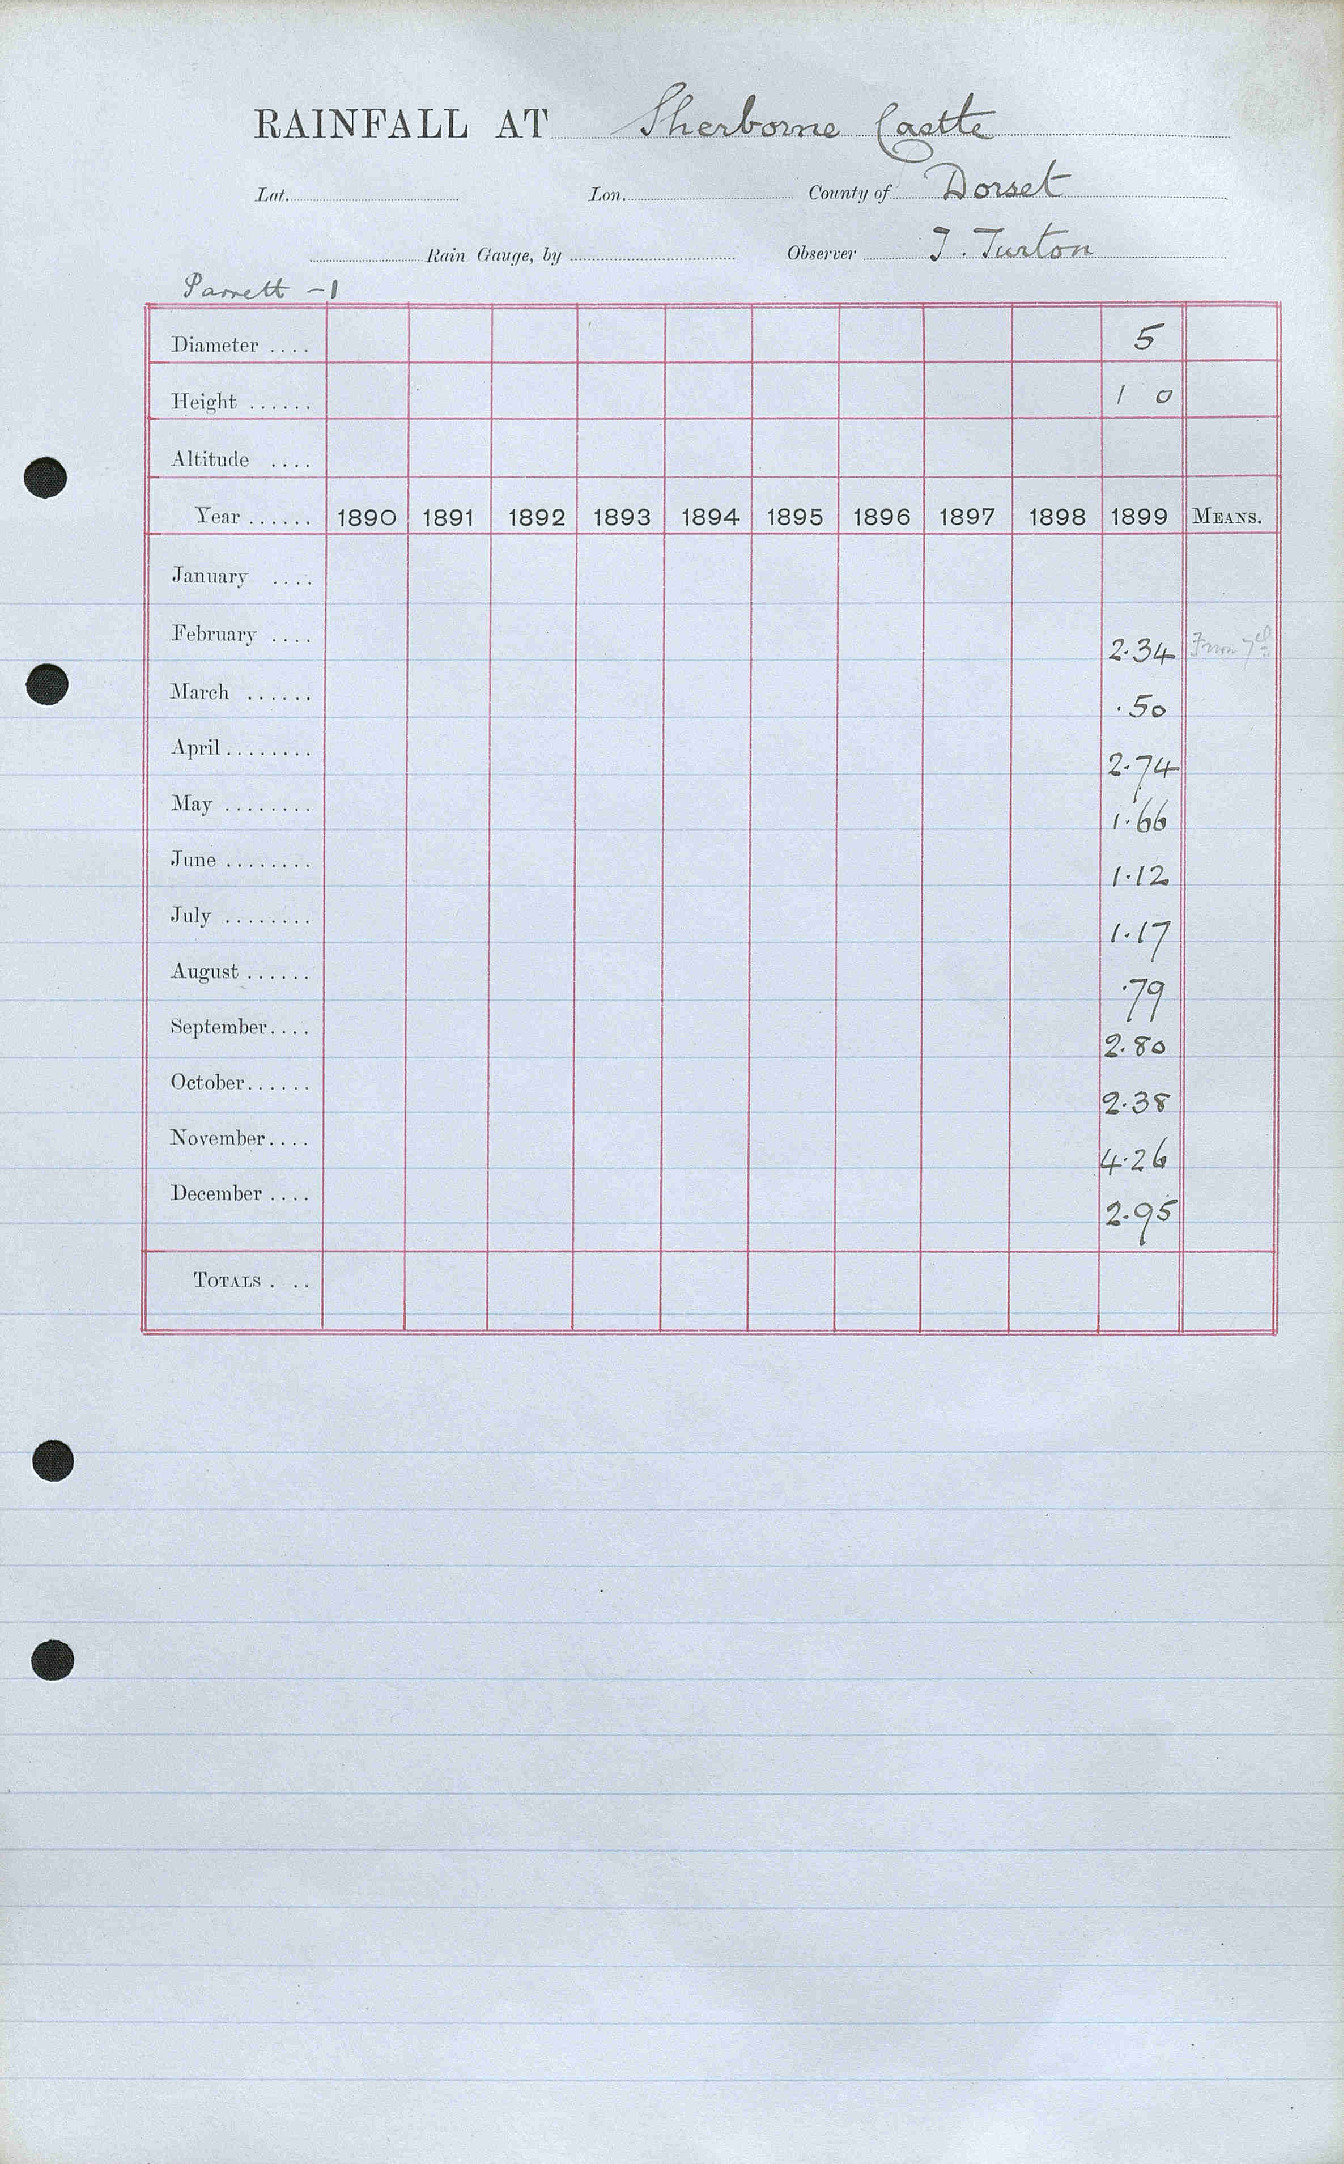 RAINFALL AT Sherborne Castle
Lat. Lon. County of Dorset
Rain Gauge, by Observer J. Turton
Parrett - 1
Diameter .... 5
Height ...... 1 0
Altitude ....
Year ...... 1890 1891 1892 1893 1894 1895 1896 1897 1898 1899 MEANS.
January ....
February .... 2.34 From 7th
March ...... .50
April ........ 2.74
May ........ 1.66
June ........ 1.12
July ........ 1.17
August ...... .79
September.... 2.80
October...... 2.38
November.... 4.26
December .... 2.95
TOTALS . ..